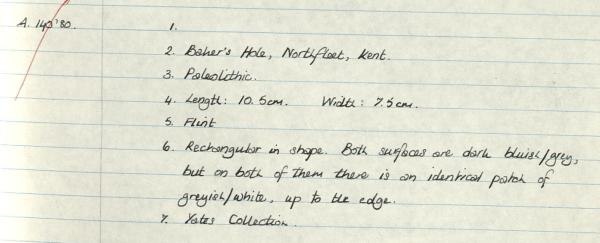 A. 143'80. 1.
2. Baker's Hole, Northfleet, Kent.
3. Paleolithic.
4. Length: 10.5cm. Width: 7.5cm.
5. Flint
6. Rectangular in shape. Both surfaces are dark bluish/grey,
but on both of them there is an identical patch of
greyish/white, up to the edge.
7. Yates Collection.